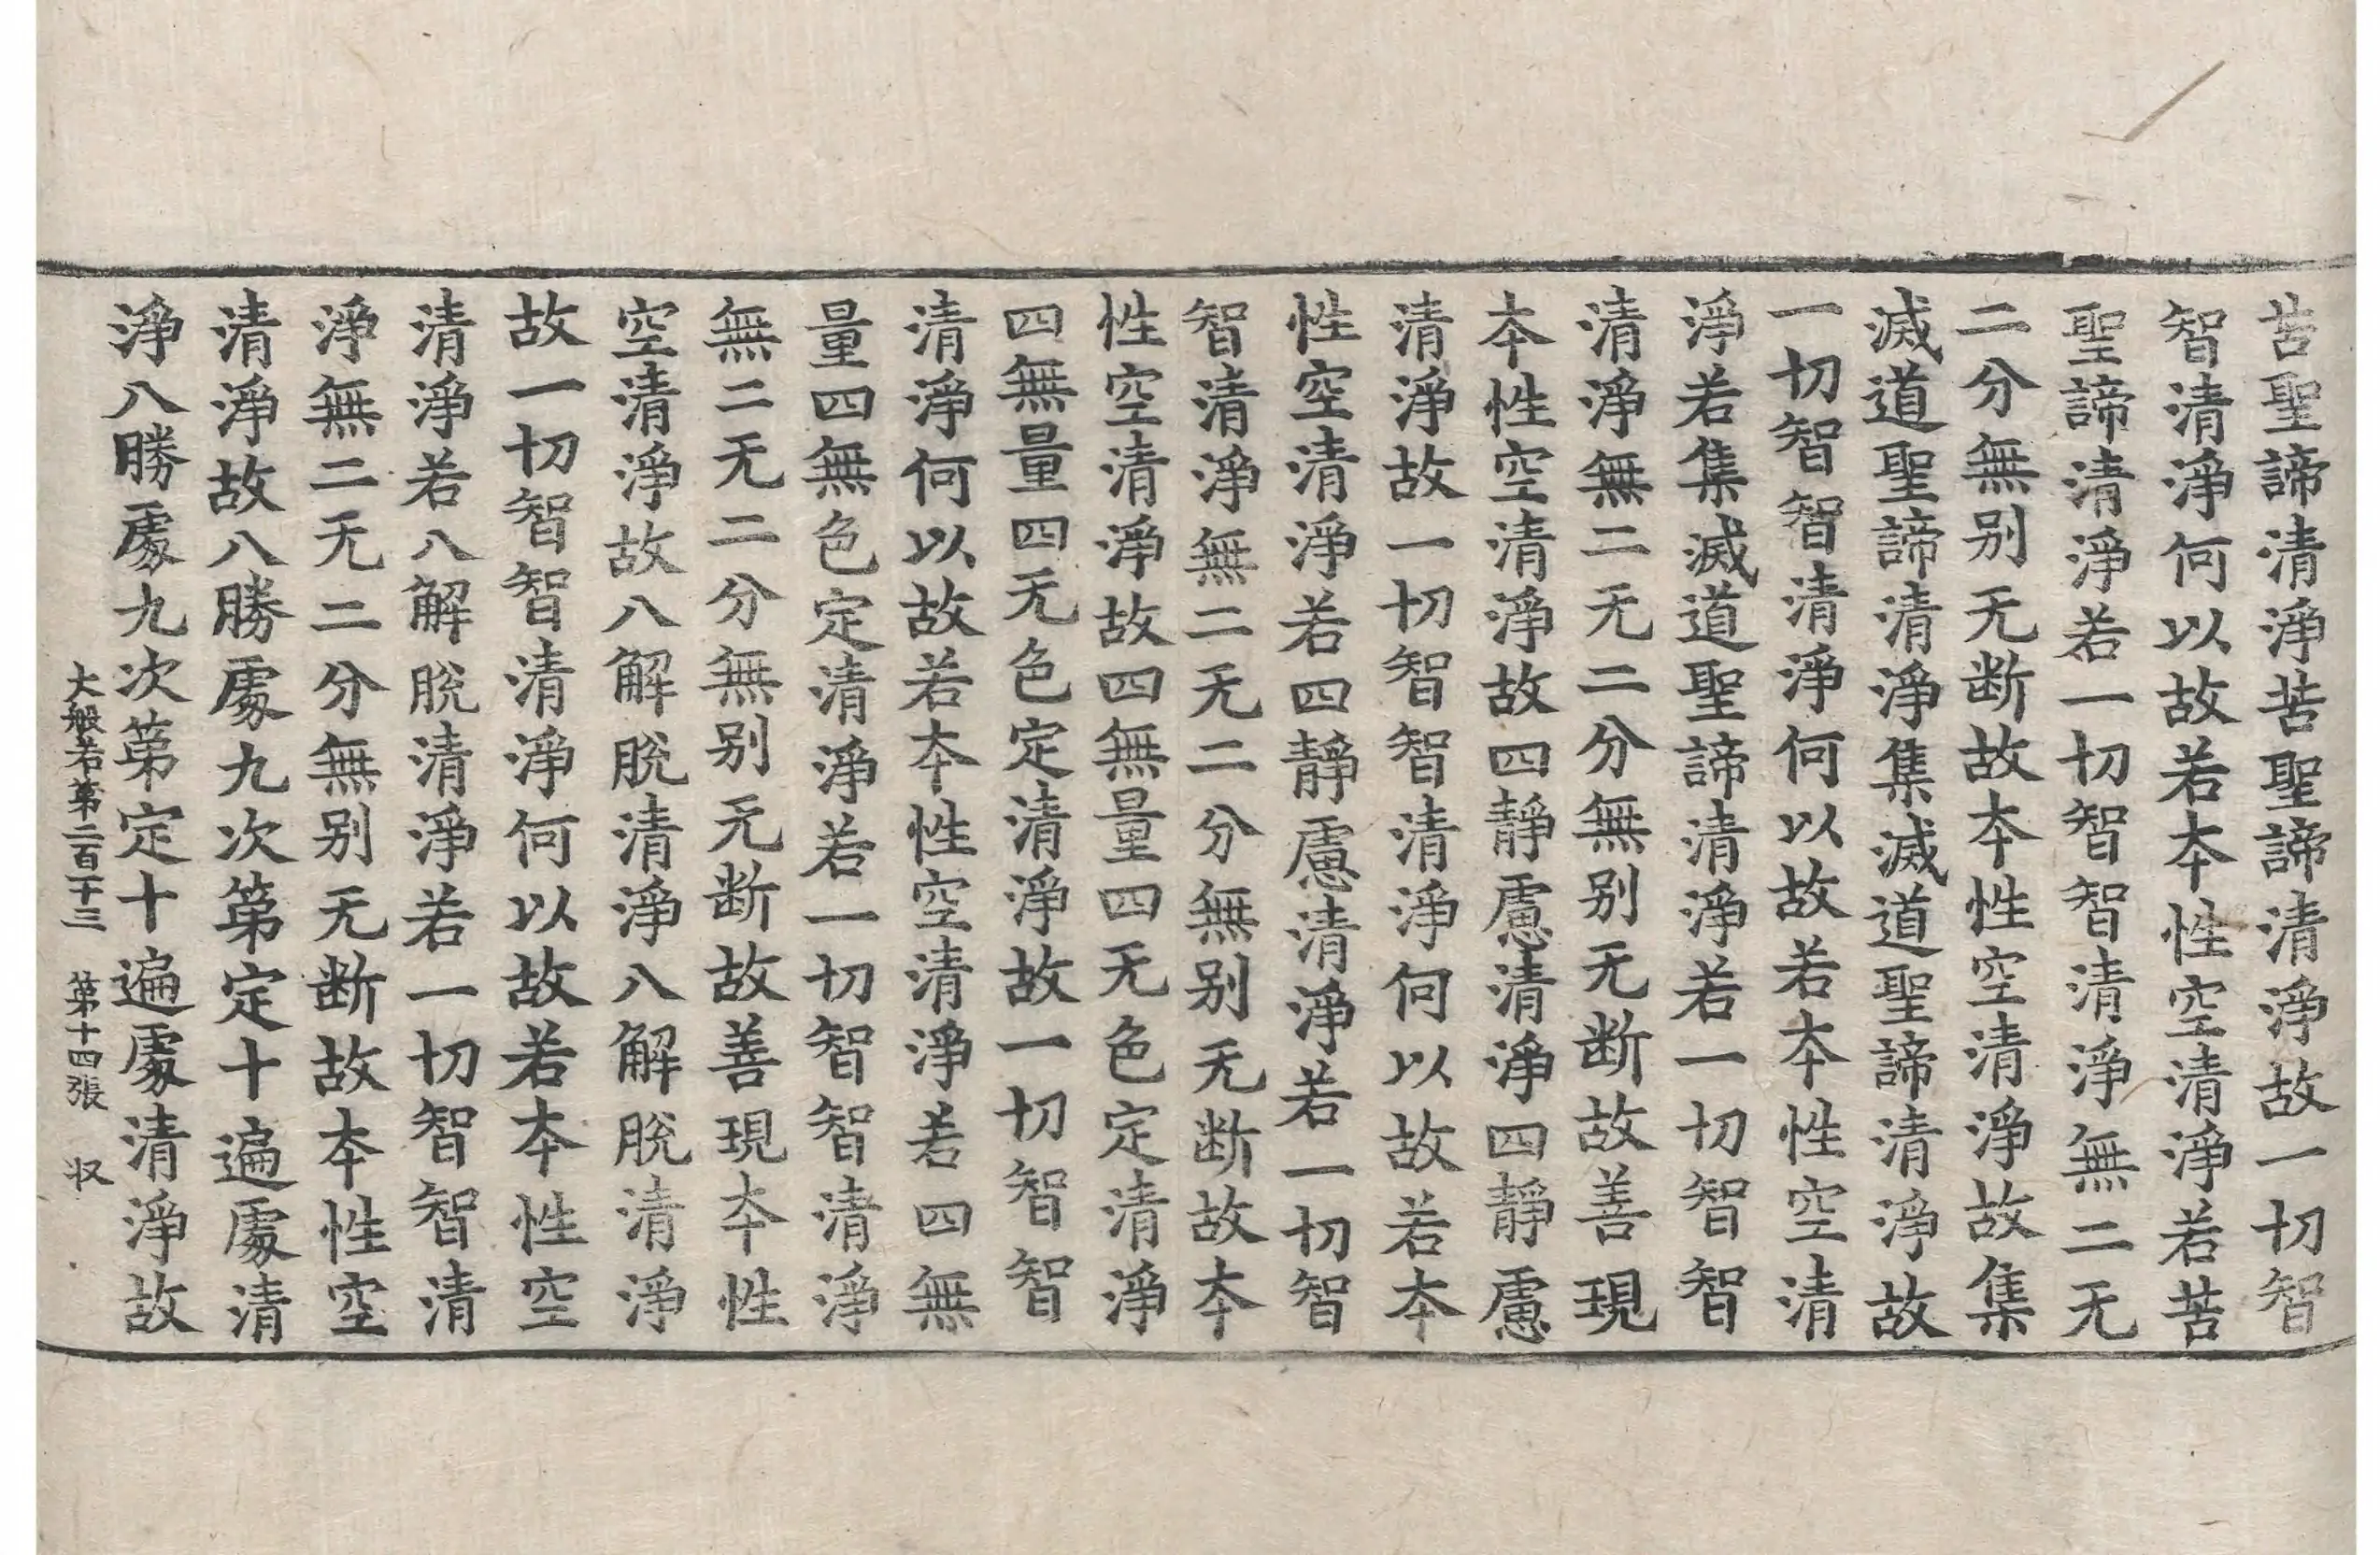 苦聖諦清淨苦聖諦清淨故一切智
智清淨何以故若本性空清淨若苦
聖諦清淨若一切智智清淨無二无
二分無别无断故本性空清淨故集
滅道聖諦清淨集滅道聖諦清淨故
一切智智清淨何以故若本性空清
淨若集滅道聖諦清淨若一切智智
清淨無二无二分無别无断故善現
本性空清淨故四靜慮清淨四靜慮
清淨故一切智智清淨何以故若本
性空清淨若四靜慮清淨若一切智
智清淨無二无二分無别无断故本
性空清淨故四無量四无色定清淨
四無量四无色定清淨故一切智智
清淨何以故若本性空清淨若四無
量四無色定清淨若一切智智清淨
無二无二分無别无断故善現本性
空清淨故八解脫清淨八解脫清淨
故一切智智清淨何以故若本性空
清淨若八解脫清淨若一切智智清
淨無二无二分無别无断故本性空
清淨故八勝處九次第定十遍處清
淨八勝處九次第定十遍處清淨故
大般若第二百一十三 第十四張 収